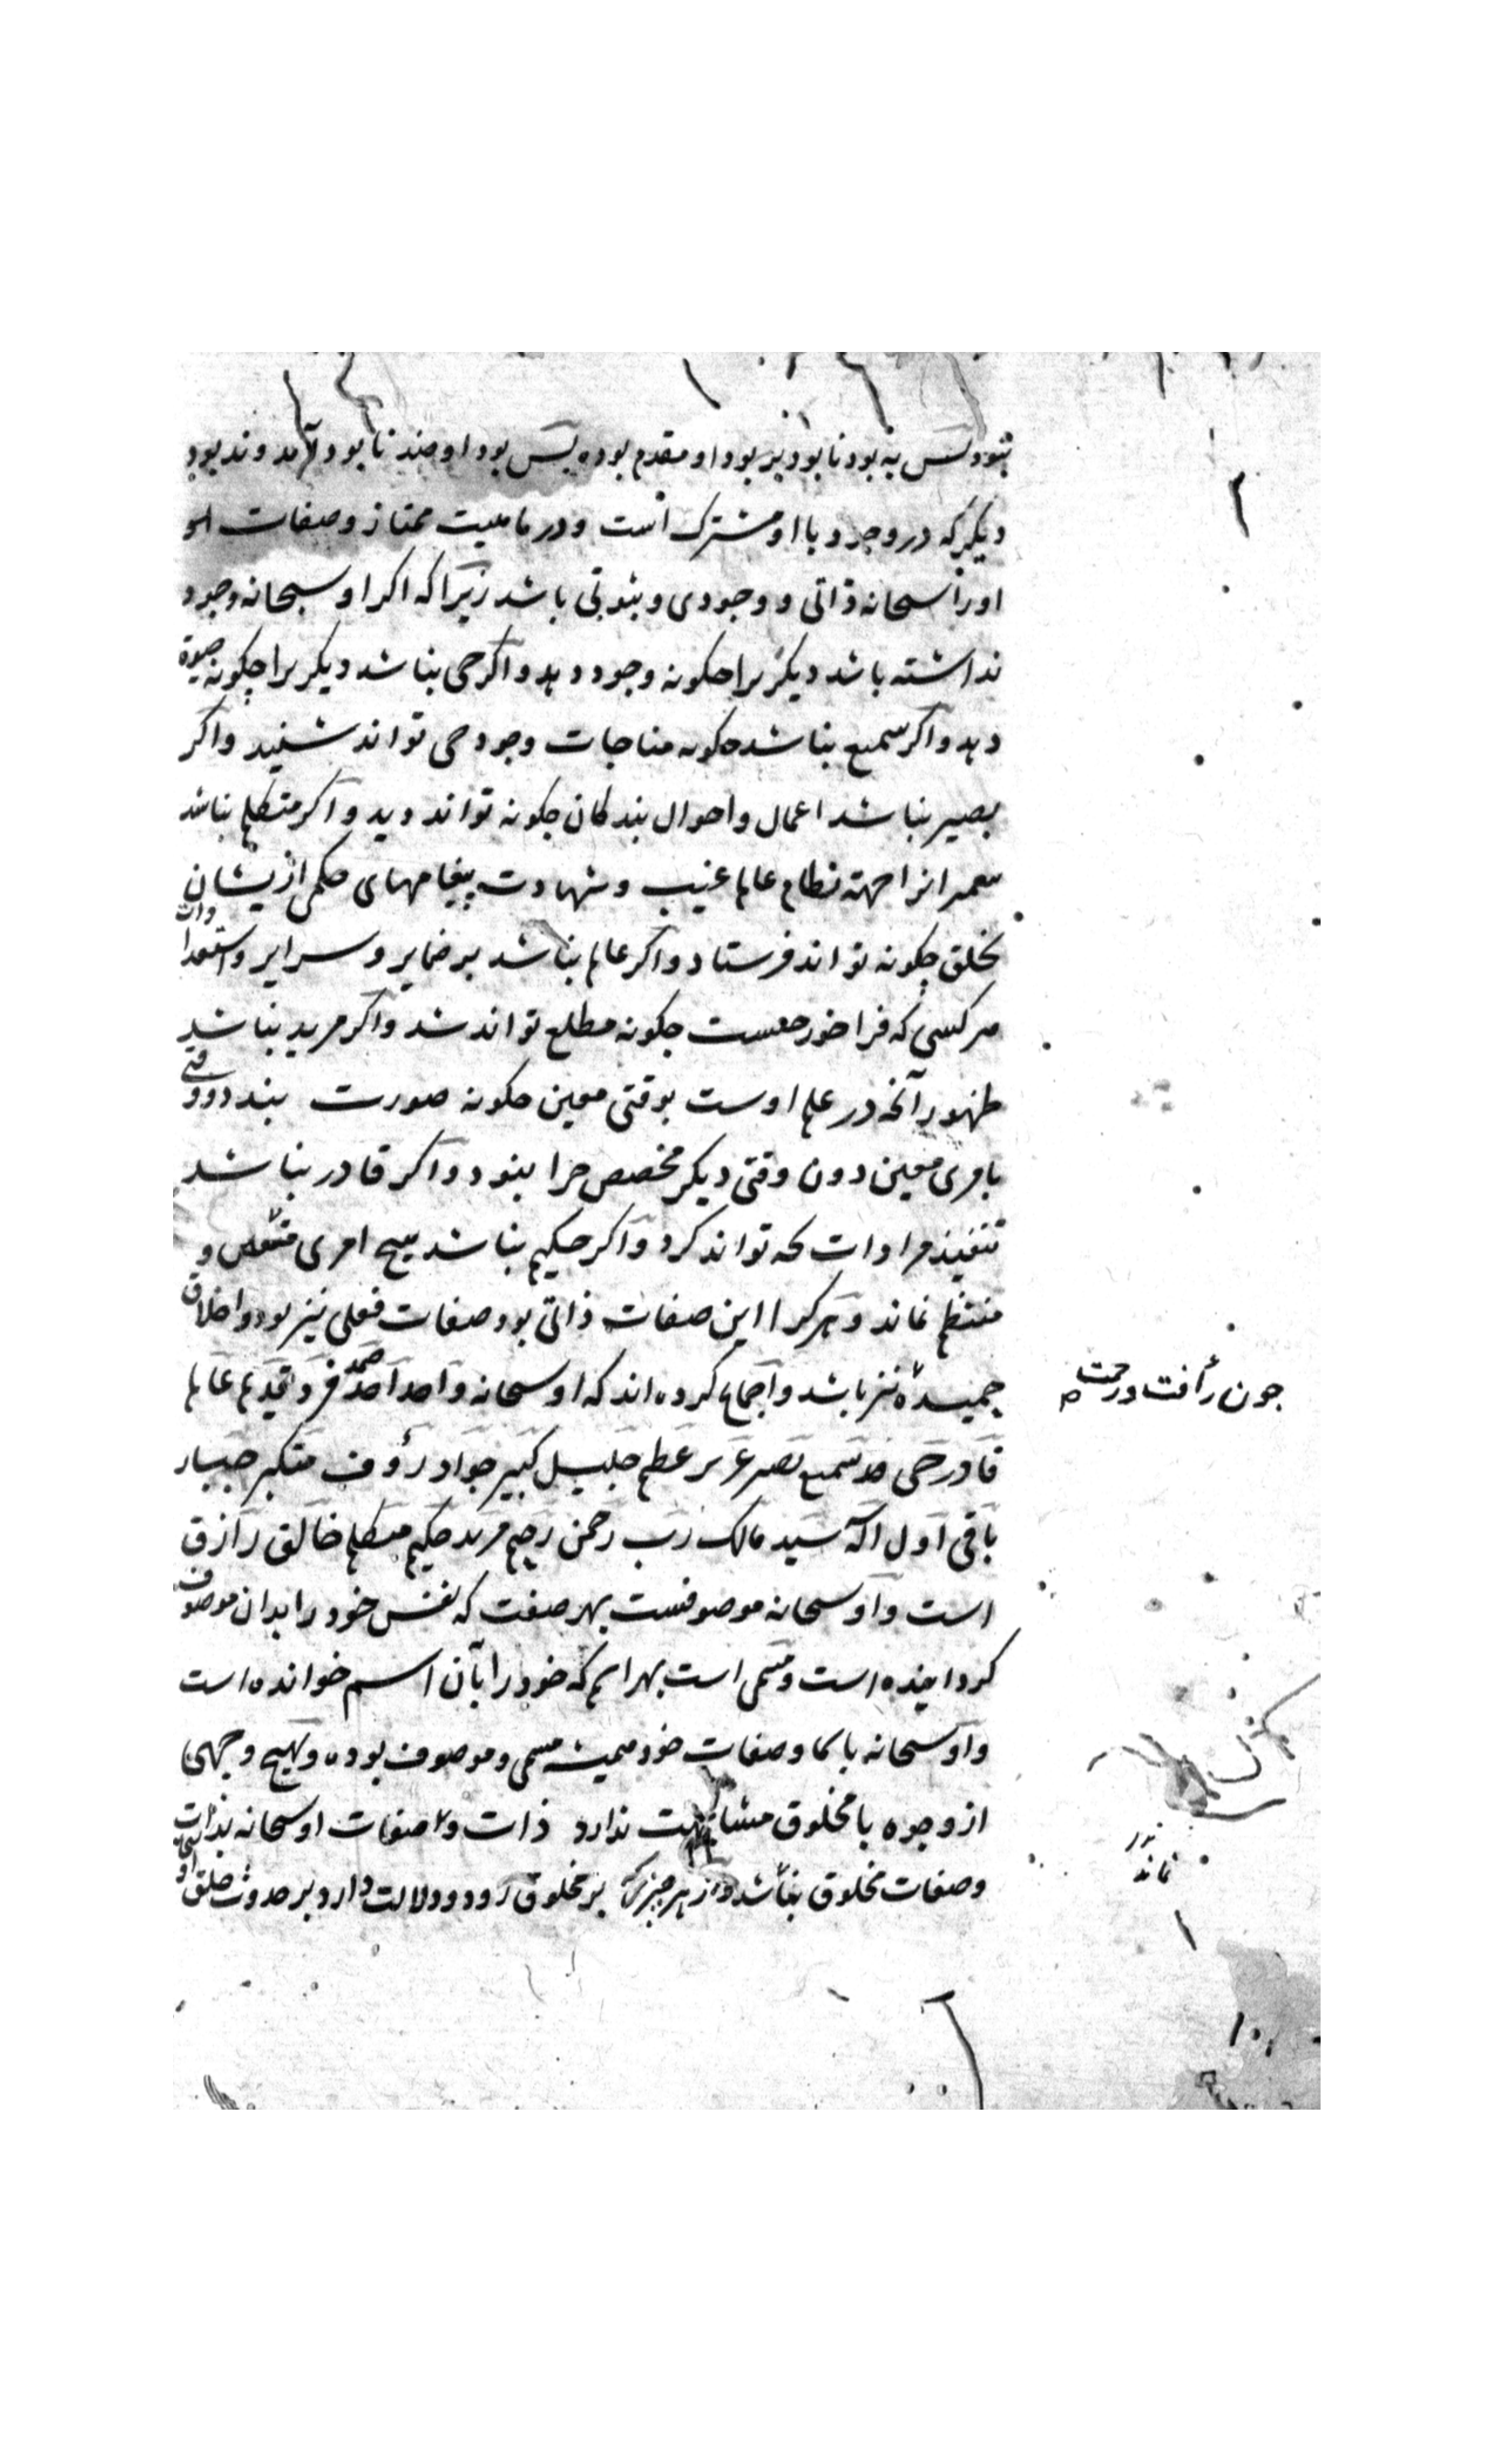 نبود پس نه بود نابود بر بود او مقدم بوده پس بود او ضد نابود آمد و ند بود
دیگر که در وجود با او مشترک است و در ماهیت ممتاز و صفات
اورا سبحانه ذاتی و وجودی و ثبوتی باشد زیرا که اکر او سبحانه وجود
نداشته باشد دیکر برا چکونه وجود دهد و اکر حی نباشد دیکر برا چکونه حیوة
دهد و اکر سمیع نباشد چکونه مناجات وجود می تواند شنید و اکر
بصیر نباشد اعمال و احوال بندکان چکونه تواند دید و اکر متکلم نباشد
پیغمبرانرا جهته نظام عالم غیب و شهادت پیغامهای حکمی ازیشان
بخلق چکونه تواند فرستاد و اکر عالم نباشد بر ضمایر و سرایر و استعدادات
هر کسی که فراخور چیست چکونه مطلع تواند شد و اکر مرید نباشد
ظهور آنچه در علم اوست بوقتی معین چکونه صورت بندد و وقتی
بامری معین دون وقتی دیکر مخصص چرا بنود و اکر قادر نباشد
تنفیذ مرادات که تواند کرد و اکر حکیم نباشد هیچ امری متقن و
منتظم نماند و هر کرا این صفات ذاتی بود صفات فعلی نیز بود و اخلاق
حمیده نیز باشد و اجماع کرده اند که او سبحانه واحد احد صمد فرد قدیم عالم
چون رأفت و رحمت
قادر حی سمیع بصیر عزیز عظیم جلیل کبیر جواد رؤف متکبر جبار
باقی اول اله سید مالک رب رحمن رحیم مرید حکیم متکلم خالق رازق
است و او سبحانه موصوفست بهر صفت که نفس خود را بدان موصوف
کردانیده است و مسمی است بهر اسم که خود را بآن اسم خوانده است
و او سبحانه با سما و صفات خود همیشه مسمی و موصوف بوده و بهیچ وجهی
از وجوه با مخلوق مشابهت ندارد ذات و صفات او سبحانه بذات
وصفات مخلوق نباشد و از هر چیز که بر مخلوق رود و دلالت دارد بر حدوث خلق او
نماند